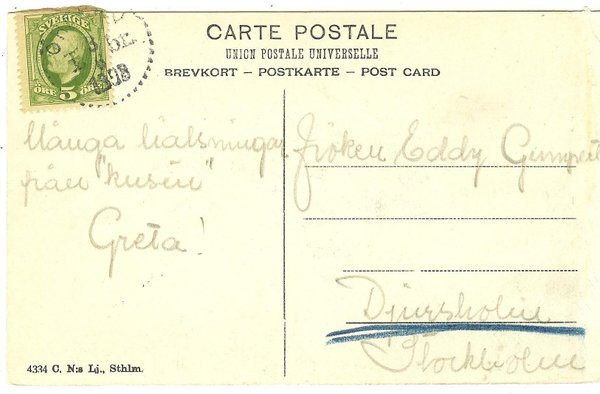 SVERIGE
ÖRE 5 ÖRE
1903
CARTE POSTALE
UNION POSTALE UNIVERSELLE
BREVKORT – POSTKARTE – POST CARD
Många hälsningar
från "kusin"
Greta!
Fröken Eddy Gumpert
Djursholm
Stockholm
4334 C. N:s Lj., Sthlm.